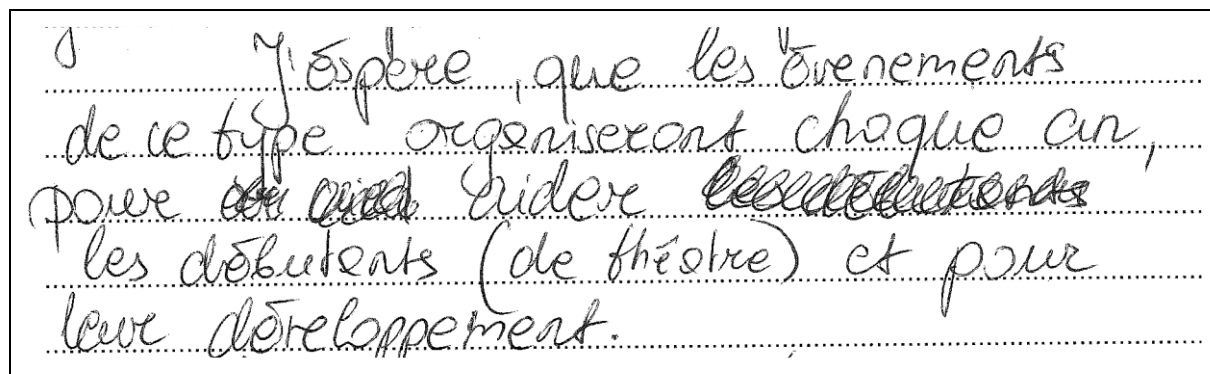 J'éspère, que les évenements
de ce type organiseront chaque an,
pour aider
les débutents (de théatre) et pour
leur développement.